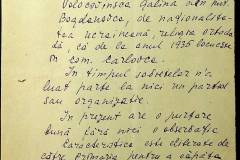 Volocovinsca Galina din nat.
Bogdanovca, de naționalita-
tea ucraineană, religia ortodo-
dă, că de la anul 1935 locuește
în com. Carlovca.
În timpul sovietelor n'a
luat parte la nici un partid
sau organizație.
În prezent are o purtare
bună fără nici o observație
Caracteristica este eliberată de
către primăria pentru a căpăta